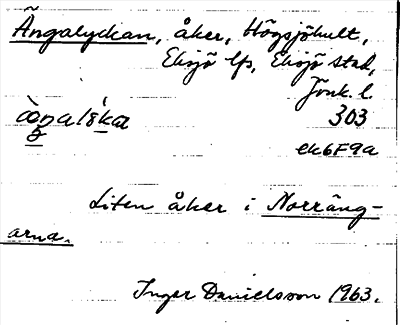 Ängalyckan, åker, Högsjöhult,
Eksjö lfs, Eksjö stad,
Jönk. l.
303
ek6F9a
Liten åker i Norräng-
arna.
Inger Danielsson 1963.